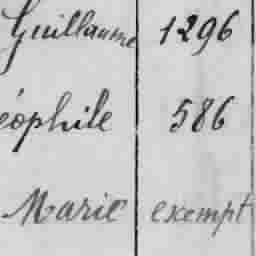 Guillaume 1296
éophile 586
Marie exempt